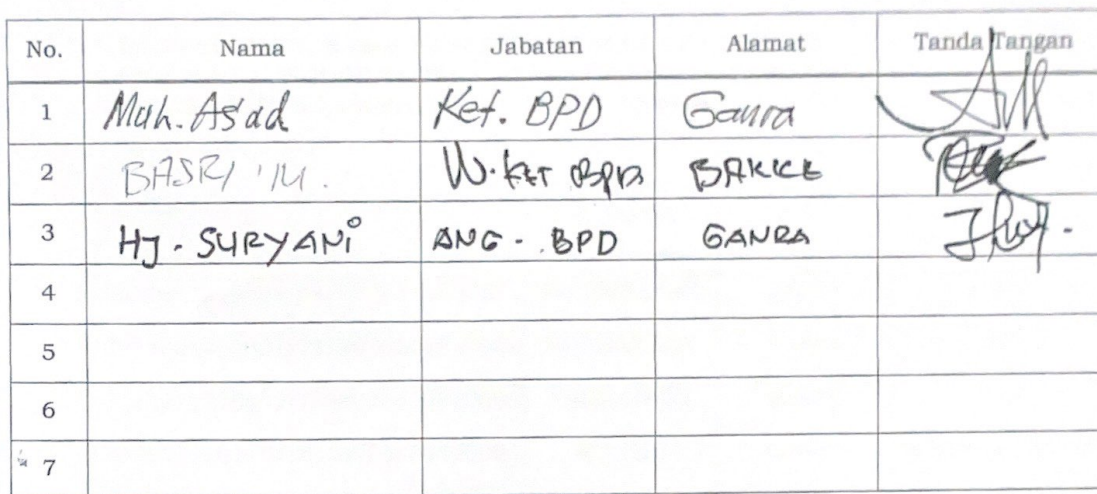 No. Nama Jabatan Alamat Tanda Tangan
1 Muh. As'ad Ket. BPD Ganra
2 BASRI 'M. W. KET BPD BAKKE
3 HJ. SURYANi ANG. BPD GANRA
4
5
6
7